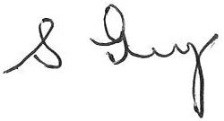 S Guy